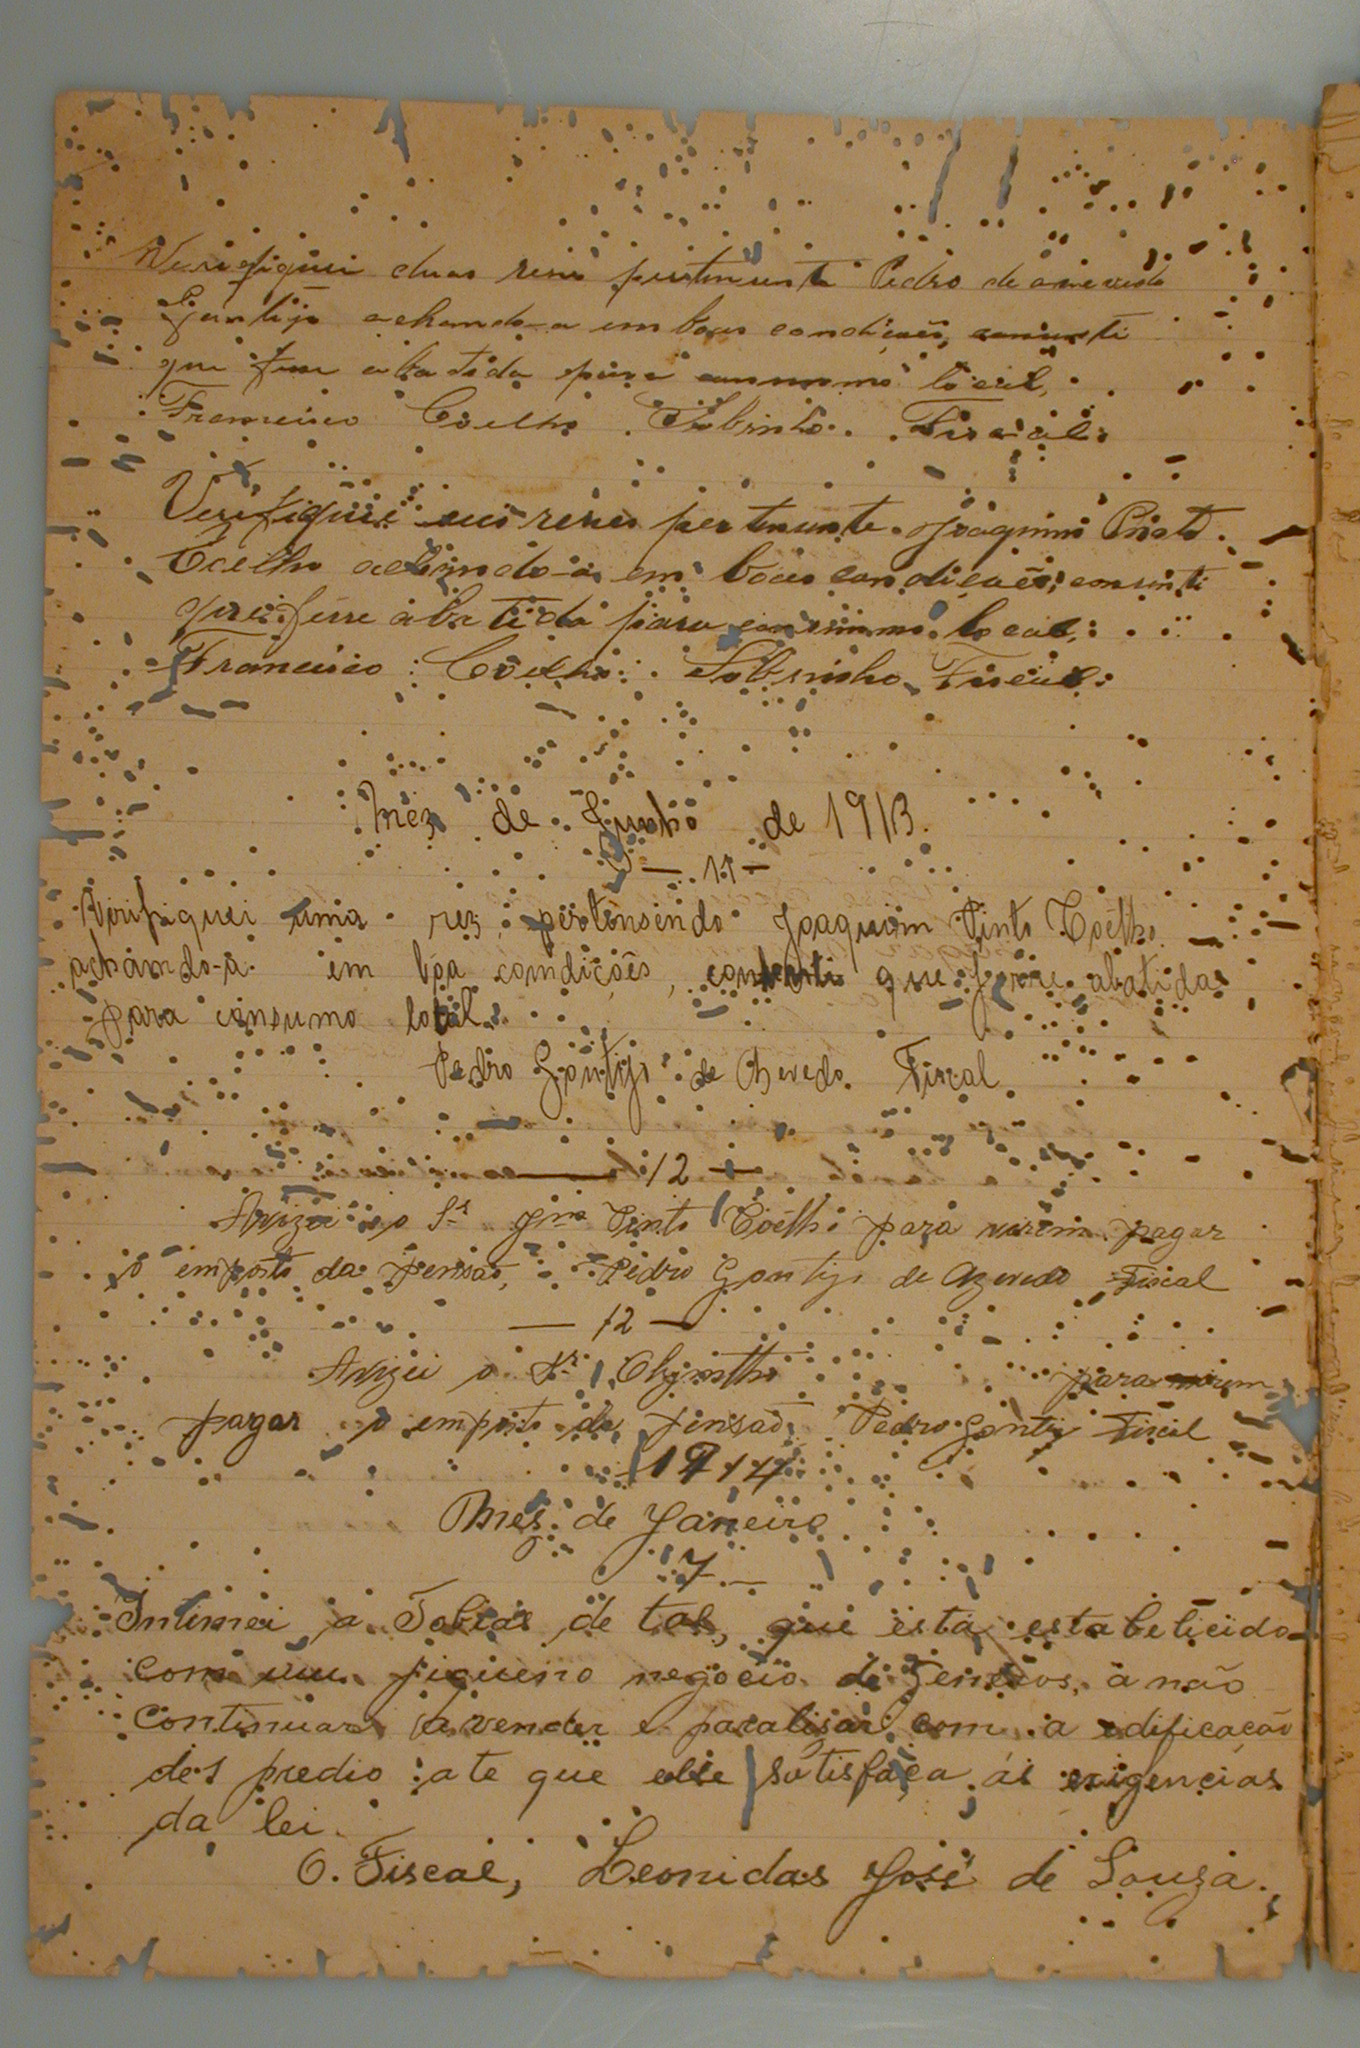 Verifiquei duas reses pertencente Pedro de Azevedo
Gontijo achando-a em boas condicoes, consenti
que fose abatida para consummo local,
Francisco Coelho Sobrinho. Fiscal.
Verifiquei reses pertencente Joaquim Pinto
Coelho achando-as em boas condicoes; consenti
que fosse abatida para consummo local,
Francisco Coelho Sobrinho Fiscal.
Mez de Junho de 1913.
— 11 —
Verifiquei uma rez, pertensendo Joaquim Pinto Coêlho
achando-a em bôa condições, consenti que fosse abatidas
para consumo local.
Pedro Gontijo de Azevedo. Fiscal
— 12 —
Avizei o Sr Jm Pinto Coêlho para virem pagar
o emposto da pensaõ, Pedro Gontijo de Azevedo Fiscal
— 12 —
Avizei o Sr Olyntho para virem
pagar o emposto da pensaõ Pedro Gontijo Fiscal
1914
Mes de Janeiro
7 —
Intimei a Tobias de tal, que está estabelicido
com um piqueno negocio de generos, a não
continuar a vender e paralisar com a edificação
des predio ate que elle satisfaça ás exigencias
da lei.
O. Fiscal, Leonidas José de Souza.